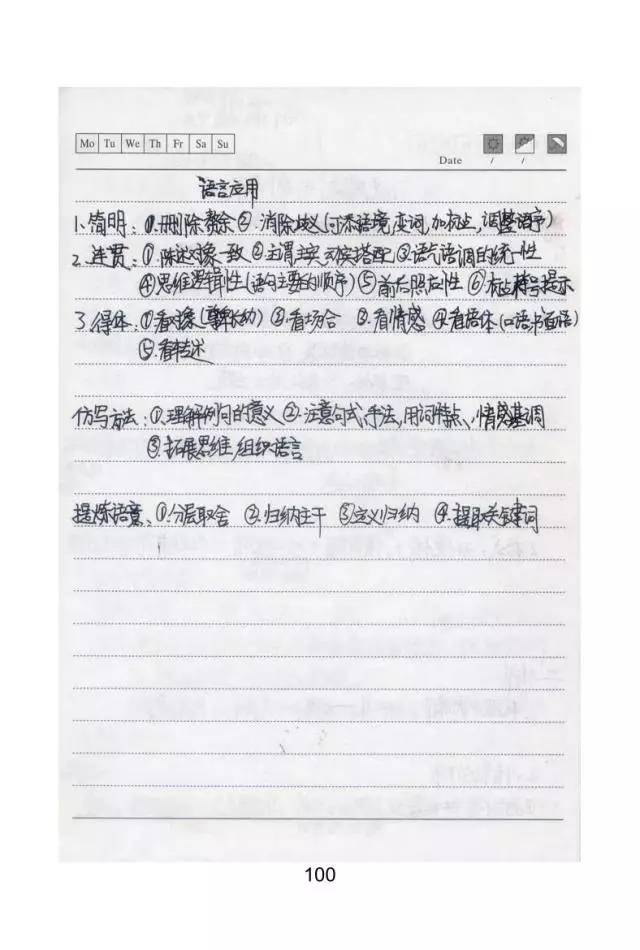 Mo Tu We Th Fr Sa Su
Date / /
语言应用
1、简明：①.删除赘余②.消除歧义(可添语境,变词,加标点,调整语序)
2、连贯：①陈述对象一致②主谓,主宾,动宾搭配③语气语调的统一性
④思维逻辑性(语句主要的顺序)⑤前后照应性⑥标点符号提示
3、得体：①看对象(尊卑长幼)②看场合 ③.看情感 ④看语体(口语,书面语)
⑤.看转述
仿写方法：①.理解例句的意义②.注意句式,手法,用词特点、情感基调
③.拓展思维,组织语言
提炼语意、①.分层取舍 ②.归纳主干 ③定义归纳 ④.提取关键词
100